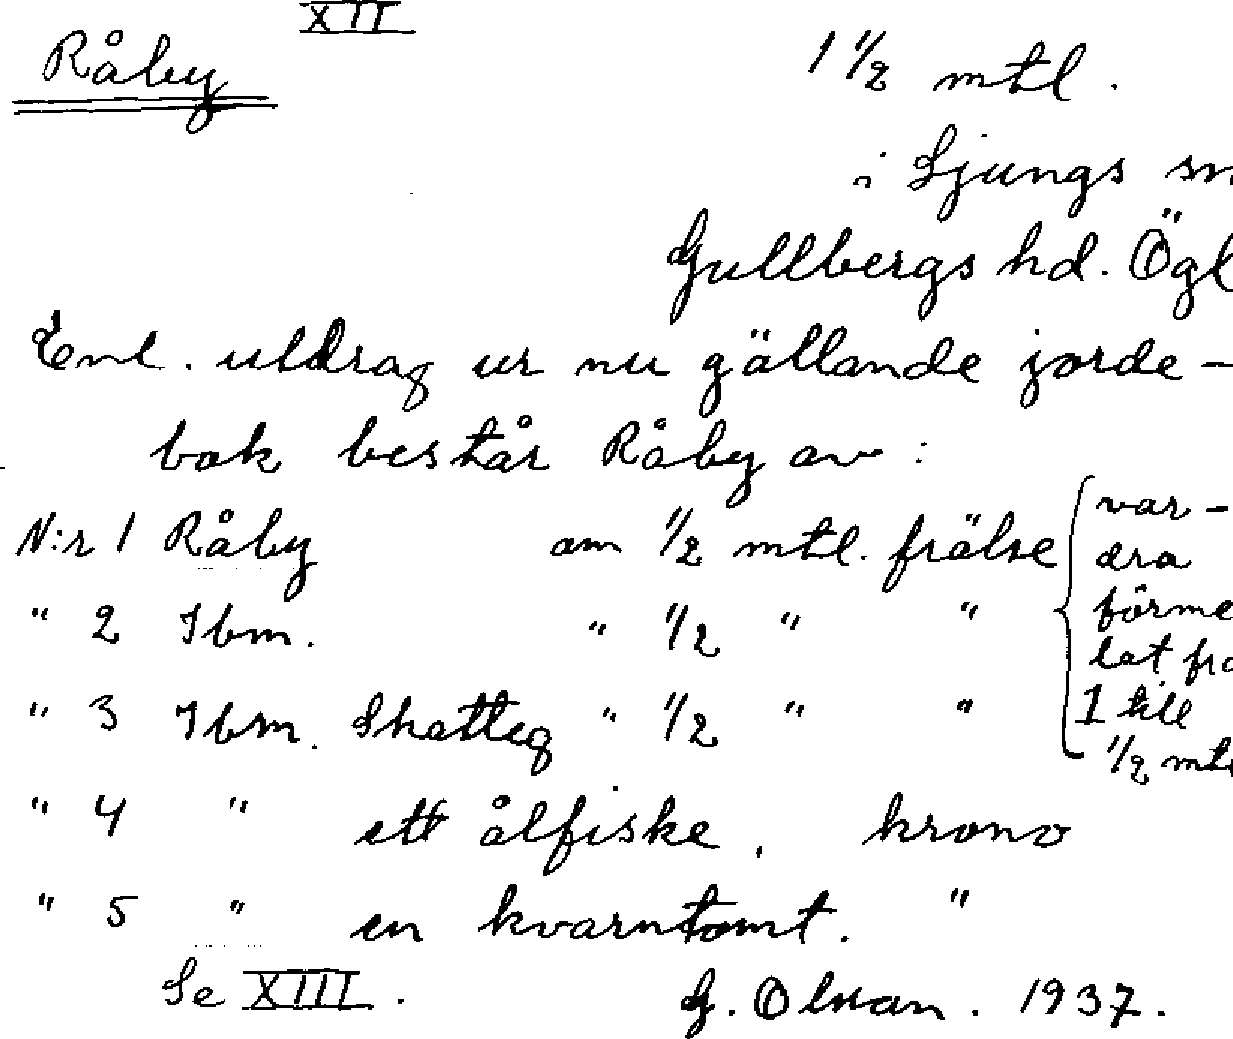 XII
Råby 1 1/2 mtl.
i Ljungs sn
Gullbergs hd. Ögl
Enl. utdrag ur nu gällande jorde-
bok består Råby av:
N:r 1 Råby om 1/2 mtl. frälse { var-
dra
" 2 Ibm. " 1/2 " " förme
lat frå
" 3 Ibm. Skatteg " 1/2 " " 1 till
1/2 mtl
" 4 " ett ålfiske, krono
" 5 " en kvarntomt. "
Se XIII. G. Olsson. 1937.